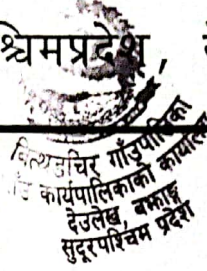 श्चिमप्रदेश,
बित्थडचिर गाँउपालिका
कार्यपालिकाको कार्यालय
देउलेख, बझाङ्ग
सुदूरपश्चिम प्रदेश